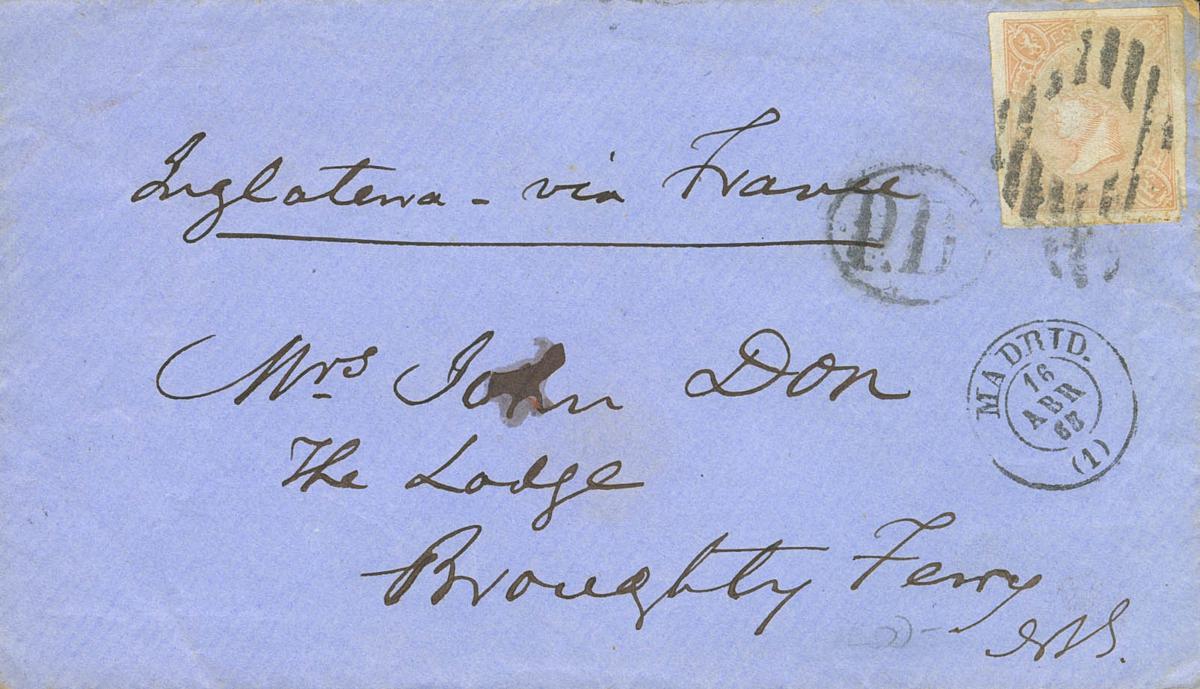 Inglaterra - via France
P.D.
Mrs John Don
The Lodge
Broughty Ferry
N.B.
MADRID.
16
ABR
65
(1)